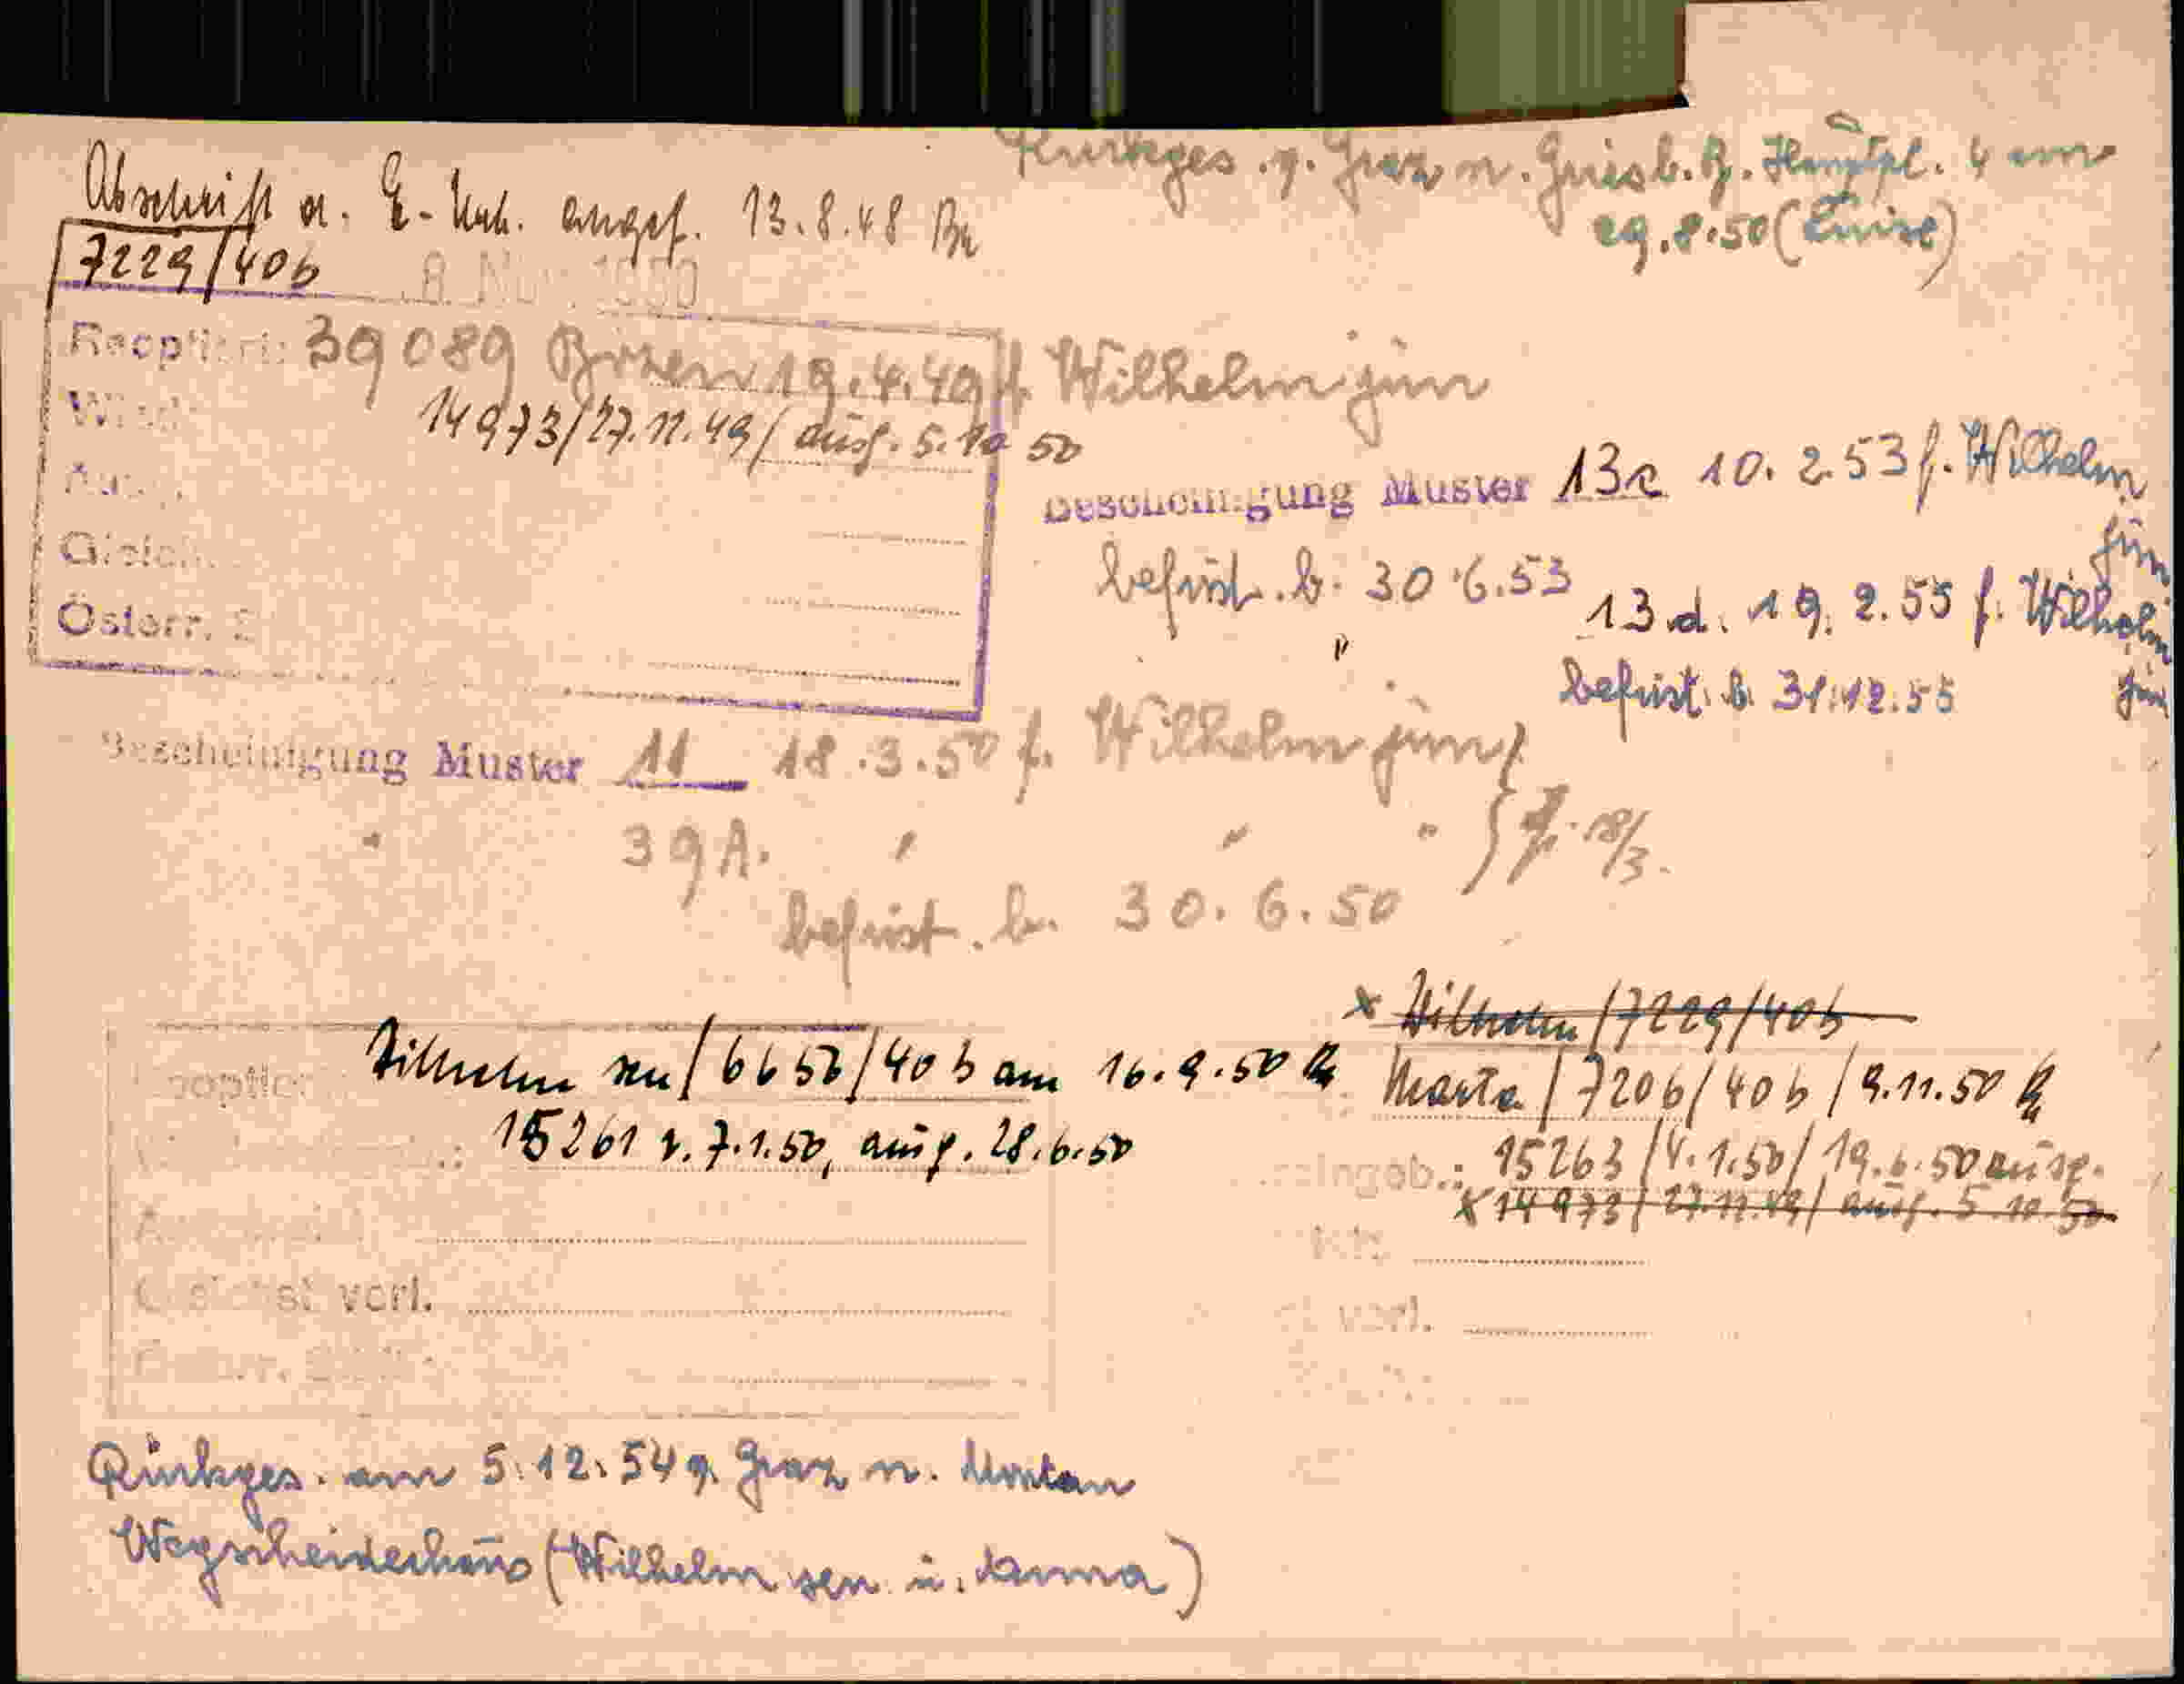 Rückges. v. Graz n. Griesb. B. Hauptpl. 4 am
29.8.50 (Luise)
Abschrift a. E-Unk. angef. 13.8.48
7229/40b
8. Nov. 1950
Reoptiert: 39089 Bozen 19.4.49 f. Wilhelm jun
14973/27.11.49/ ausg. 5.10 50
Gleich.
Österr.
Bescheinigung Muster 13c 10.2.53 f. Wilhelm jun
befrist. b. 30.6.53
" 13.d. 19.2.55 f. Wilhelm jun
befrist. b. 31.12.55
Bescheinigung Muster 11 18.3.50 f. Wilhelm jun
" 39A. " " " } 18/3.
befrist. b. 30.6.50
Wilhelm sen / 6656/40 b am 16.9.50
15261 v. 7.1.50, ausg. 28.6.50
Gleichst verl.
x Wilhelm /7229/40b
Marta / 7206/40 b / 9.11.50
eingeb.: 15263 /4.1.50/ 19.6.50 ausg.
x 14973/ 27.11.49/ ausg. 5.10.50
verl.
Rückges. am 5.12.54 v. Graz n. Montan
Wegscheiderhaus (Wilhelm sen. u. Anna)